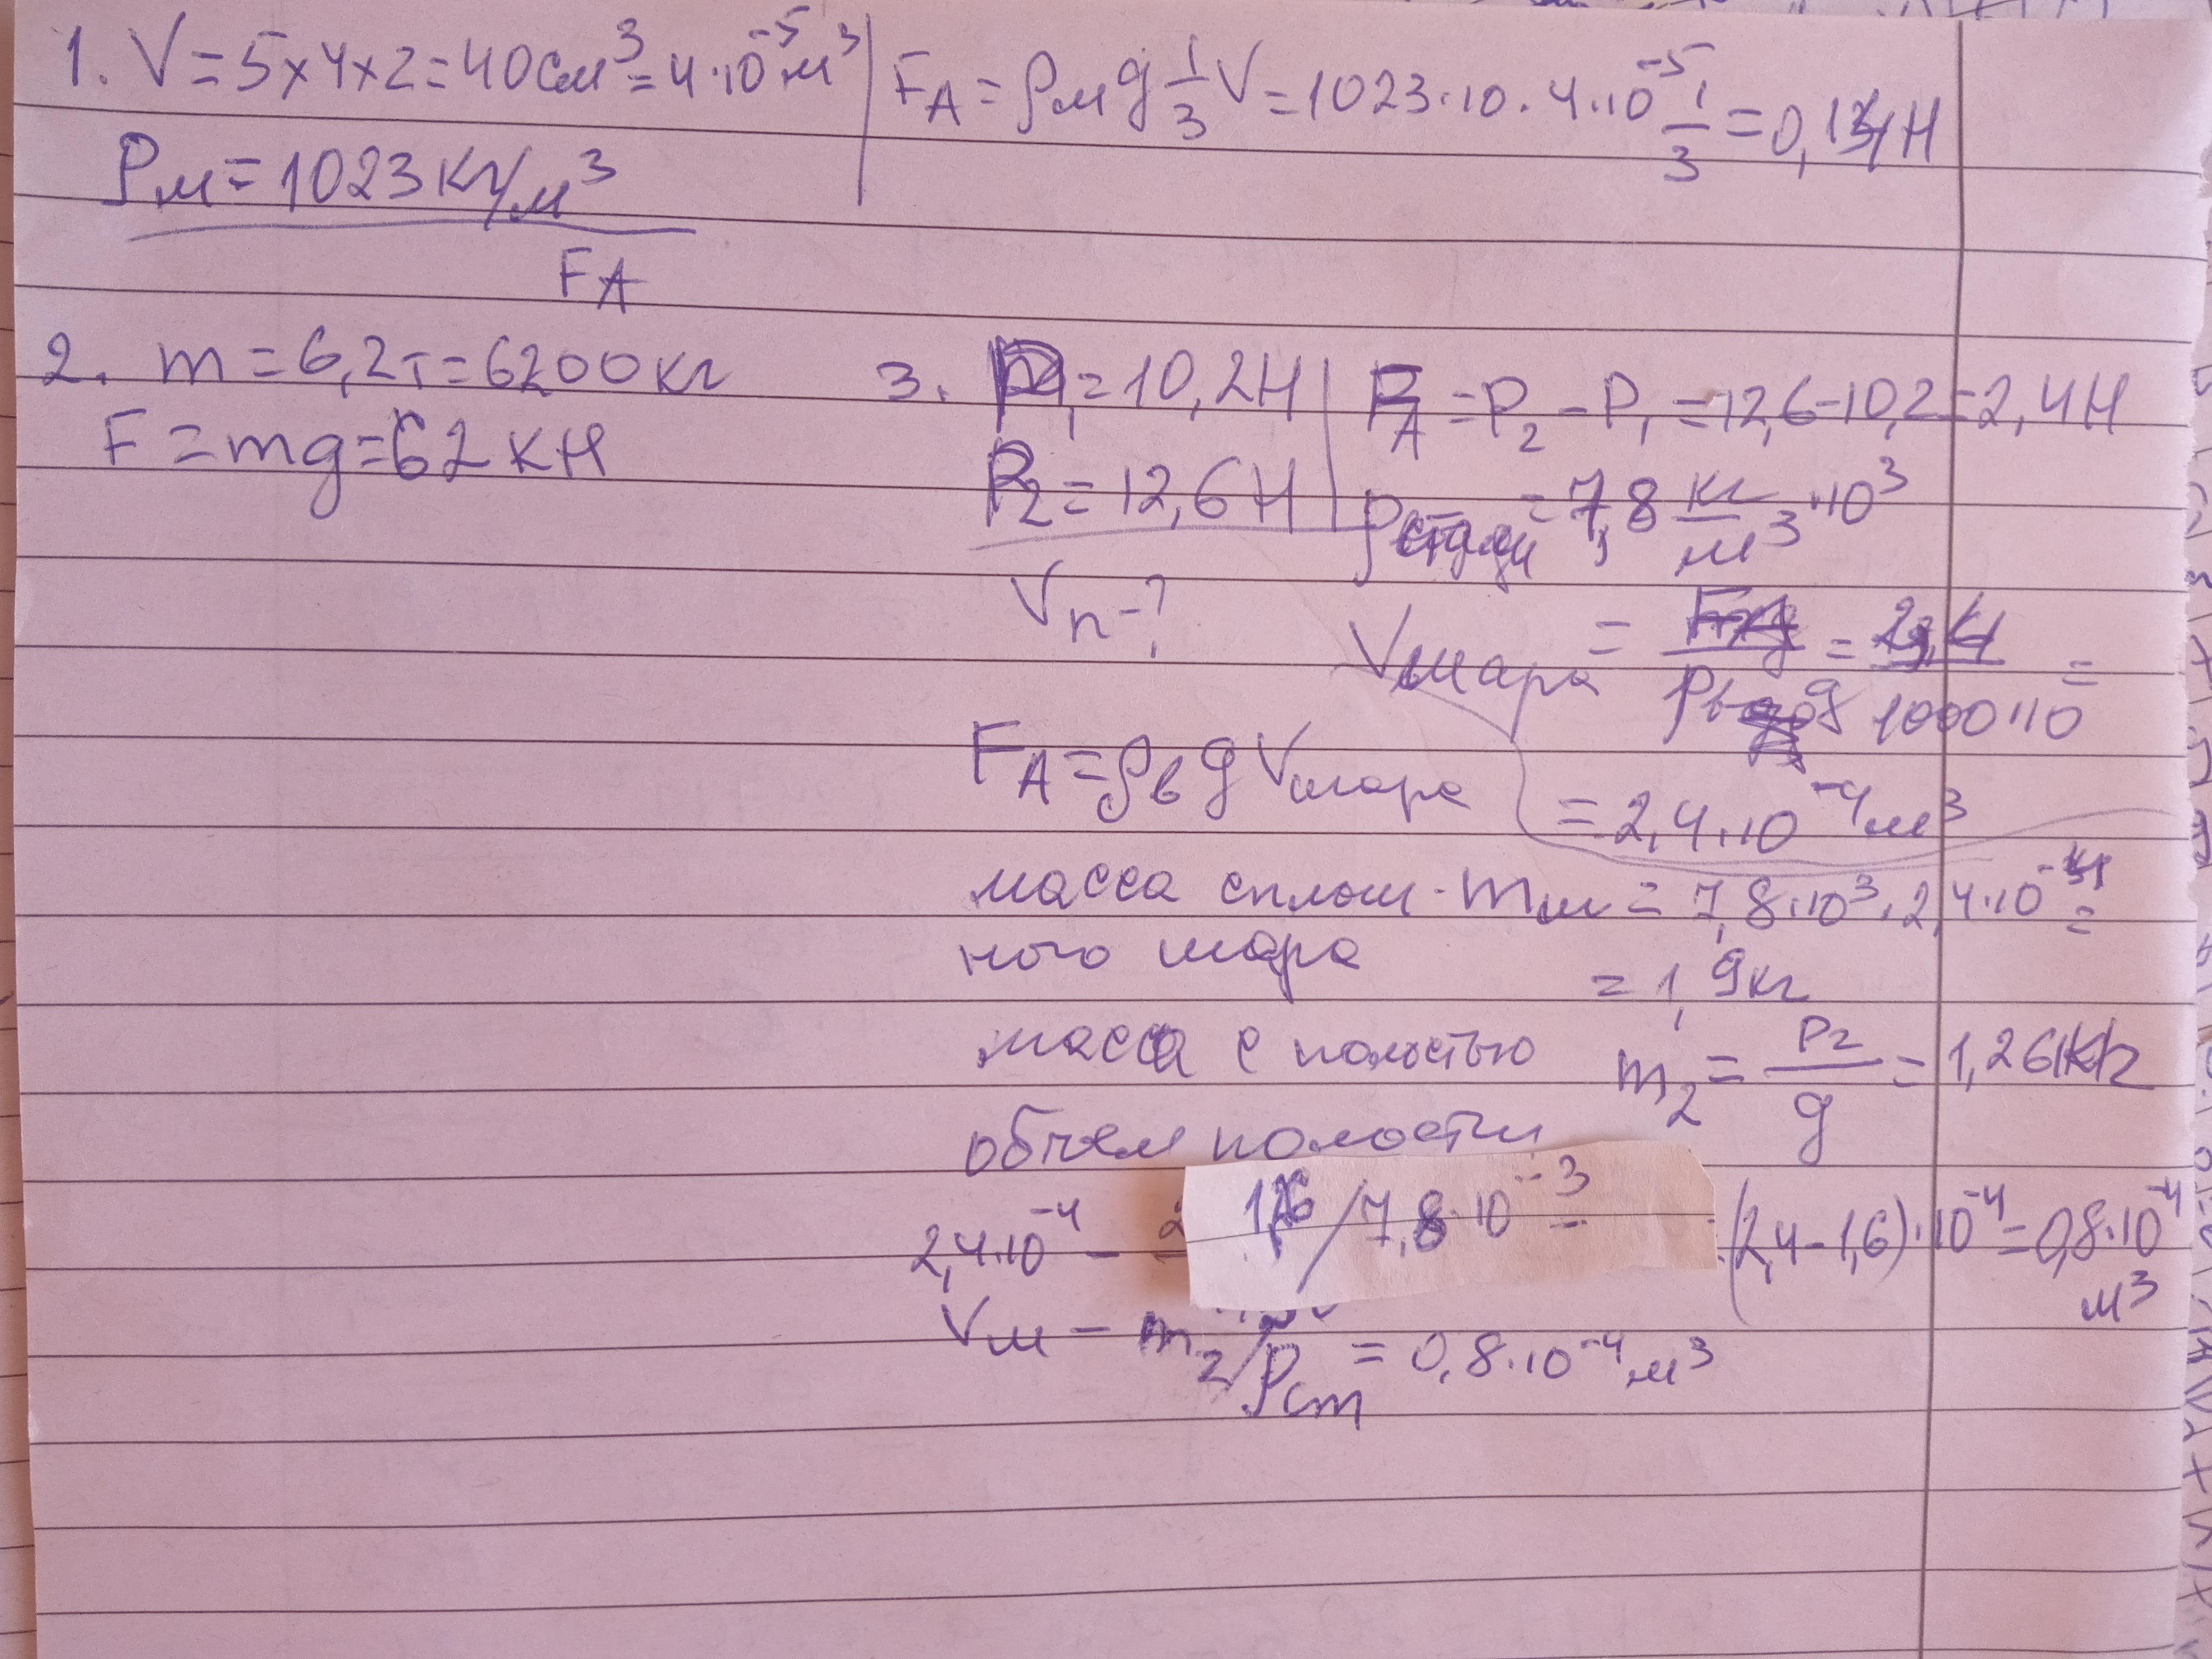 1. V = 5×4×2 = 40 см³ = 4·10⁻⁵ м³
ρм = 1023 кг/м³
FA
FA = ρм g 1/3 V = 1023·10·4·10⁻⁵ 1/3 = 0,14 Н
2. m = 6,2 т = 6200 кг
F = mg = 62 кН
3. P₁ = 10,2 Н
P₂ = 12,6 Н
Vп - ?
FA = P₂ - P₁ = 12,6 - 10,2 = 2,4 Н
ρстали = 7,8 кг/м³ · 10³
Vшара = FA/ρвg = 2,4/1000·10 =
= 2,4·10⁻⁴ м³
FA = ρв g Vшара
масса сплош- mш = 7,8·10³·2,4·10⁻⁴ =
ного шара
= 1,9 кг
масса с полостью m₂ = P₂/g = 1,26 кг
объем полости
2,4·10⁻⁴ - 1,26/7,8·10⁻³ = (2,4-1,6)·10⁻⁴ = 0,8·10⁻⁴
м³
Vш - m₂/ρст = 0,8·10⁻⁴ м³